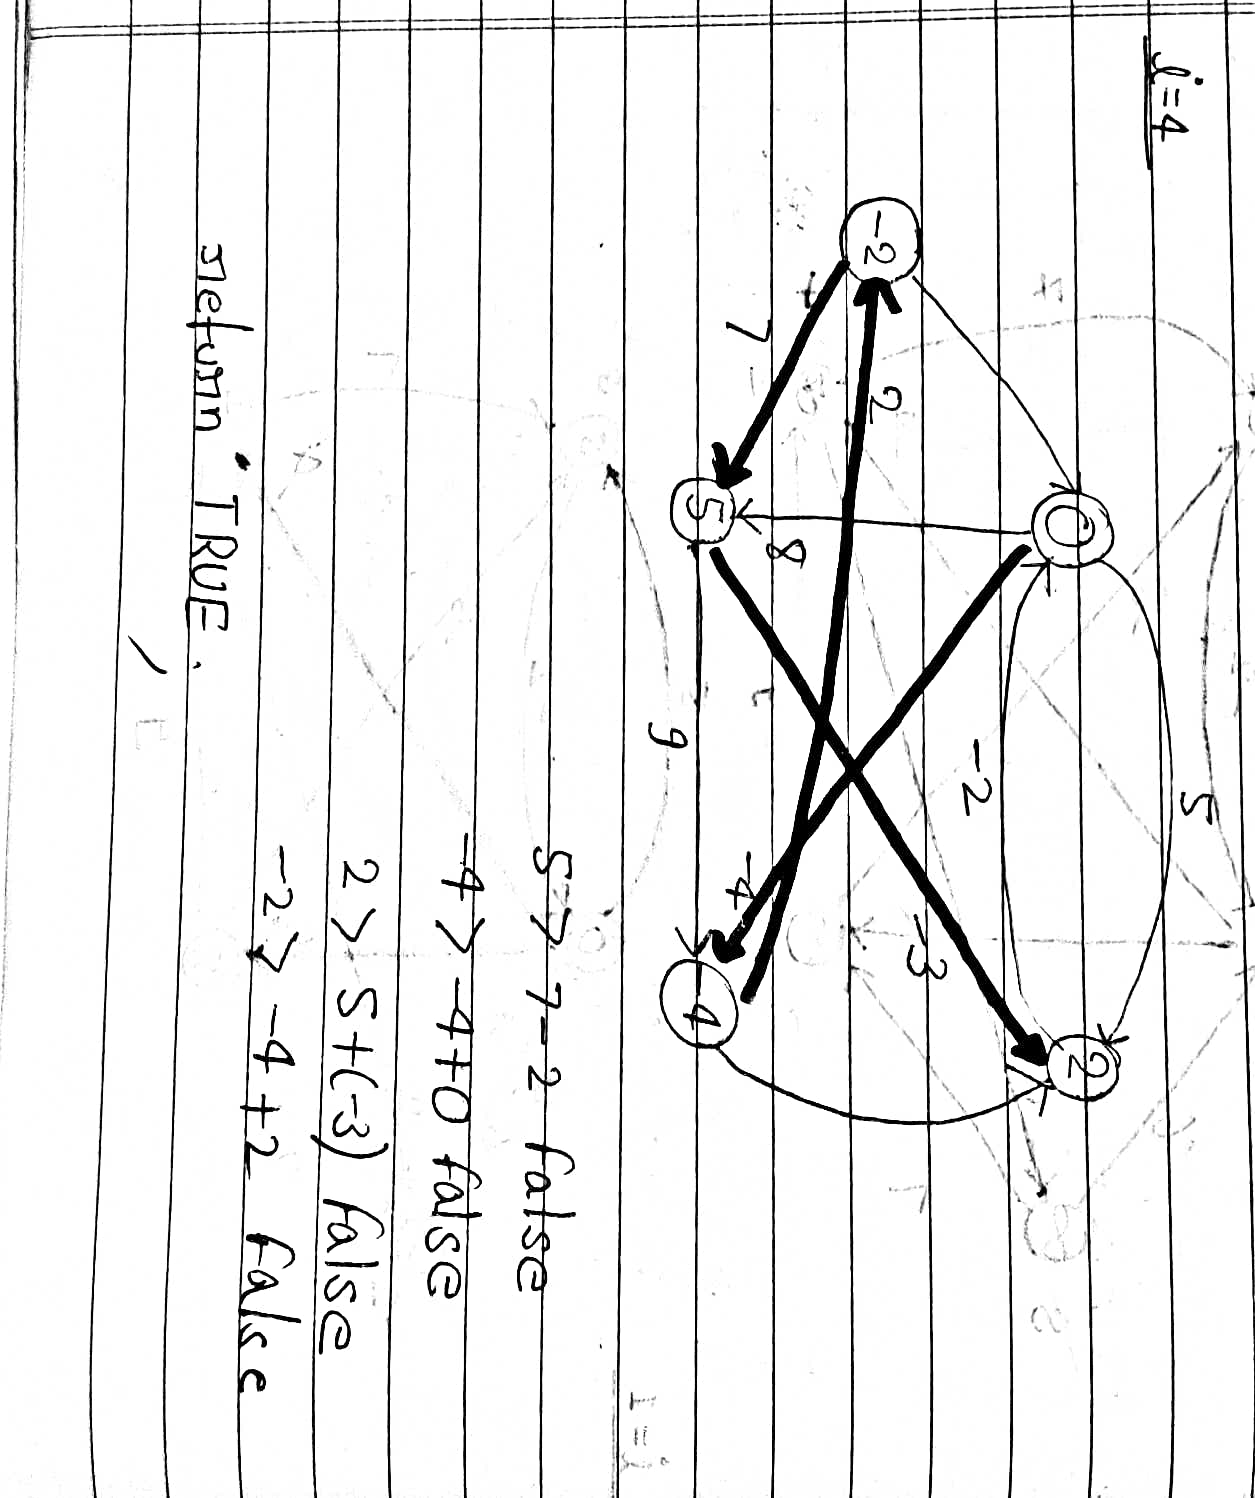 i=4
5
0 2
-2
-3
-2 2
8
7 -4
5 -4
9
5 > 7-2 false
-4 > -4+0 false
2 > 5+(-3) false
-2 > -4+2 false
return TRUE.